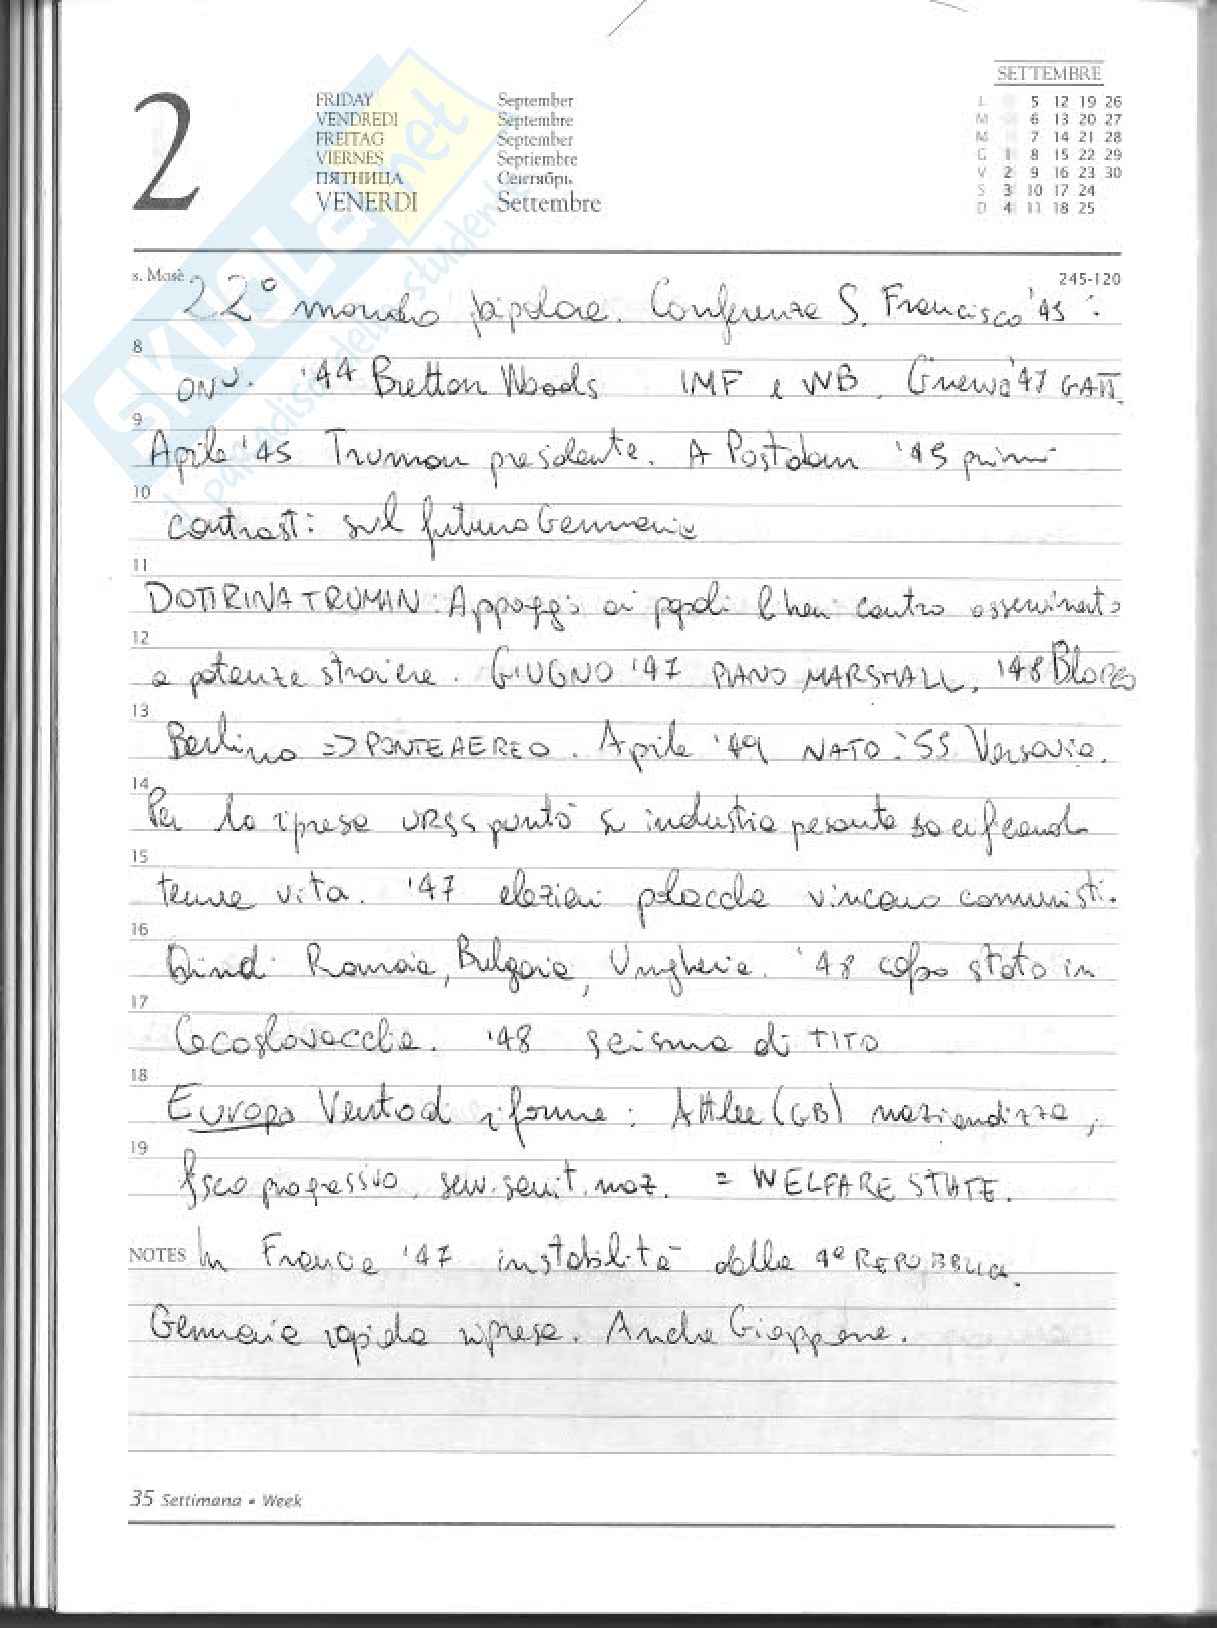 2
FRIDAY September
VENDREDI Septembre
FREITAG September
VIERNES Septiembre
ПЯТНИЦА Сентябрь
VENERDI Settembre
SETTEMBRE
L 5 12 19 26
M 6 13 20 27
M 7 14 21 28
G 1 8 15 22 29
V 2 9 16 23 30
S 3 10 17 24
D 4 11 18 25
SKUOLA.net
il paradiso dello studente
s. Mosè 245-120
22° mondo bipolare. Conferenza S. Francisco '45:
8
ONU. '44 Bretton Woods IMF e WB. Ginevra '47 GATT.
9
Aprile '45 Truman presidente. A Postdam '45 primi
10
contrasti sul futuro Germania
11
DOTTRINA TRUMAN: Appoggio ai popoli liberi contro asservimento
12
a potenze straniere. GIUGNO '47 PIANO MARSHALL. '48 Blocco
13
Berlino => PONTE AEREO. Aprile '49 NATO: 55 Varsavia.
14
Per la ripresa URSS puntò su industria pesante sacrificando
15
tenore vita. '47 elezioni polacche vincono comunisti.
16
Quindi Romania, Bulgaria, Ungheria. '48 colpo stato in
17
Cecoslovacchia. '48 scisma di TITO
18
Europa Vento di riforme: Attlee (GB) nazionalizza,
19
fisco progressivo, serv. sanit. naz. = WELFARE STATE.
NOTES In Francia '47 instabilità della 4ª REPUBBLICA.
Germania rapida ripresa. Anche Giappone.
35 Settimana • Week